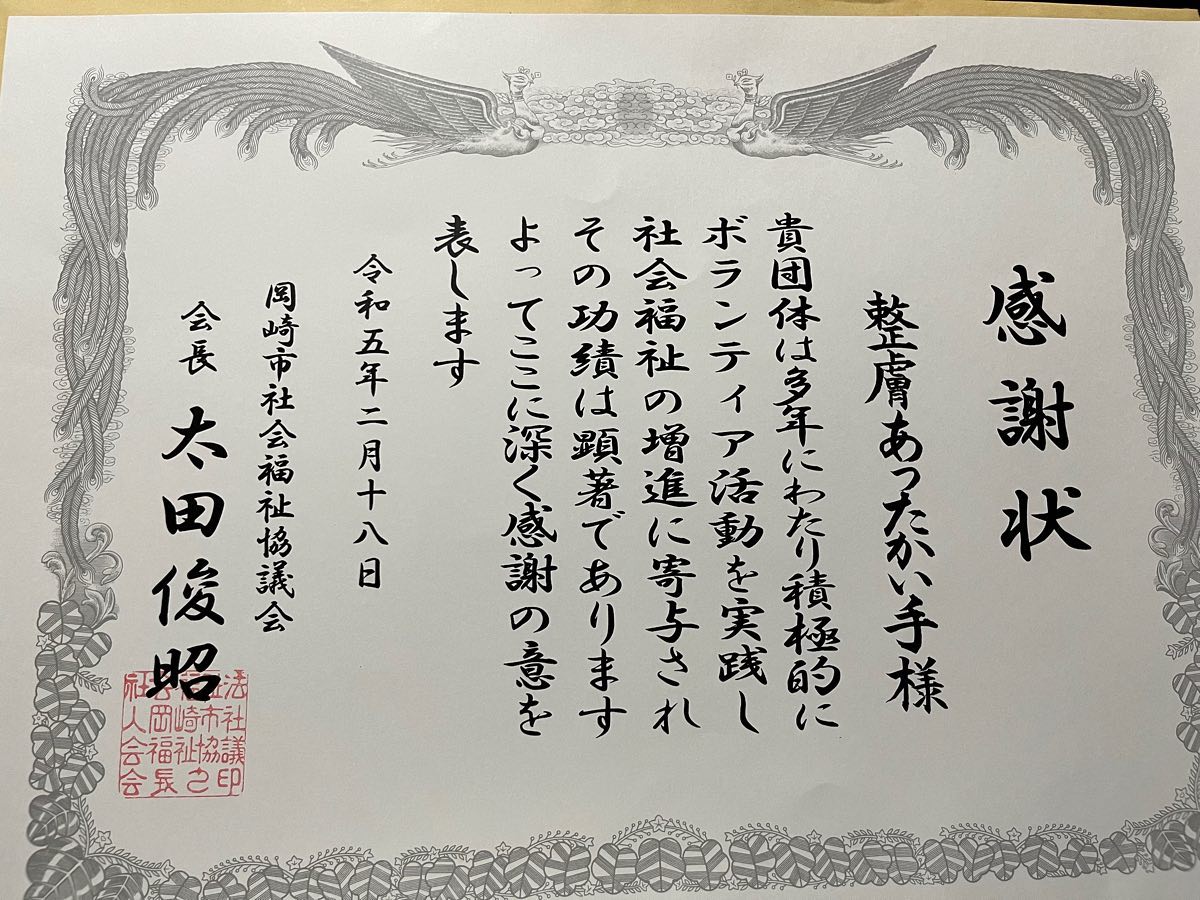 感謝状
整膚あったかい手様
貴団体は多年にわたり積極的に
ボランティア活動を実践し
社会福祉の増進に寄与され
その功績は顕著であります
よってここに深く感謝の意を
表します
令和五年二月十八日
岡崎市社会福祉協議会
会長 太田俊昭
社会福祉法
人岡崎市社
会福祉協議
会会長之印